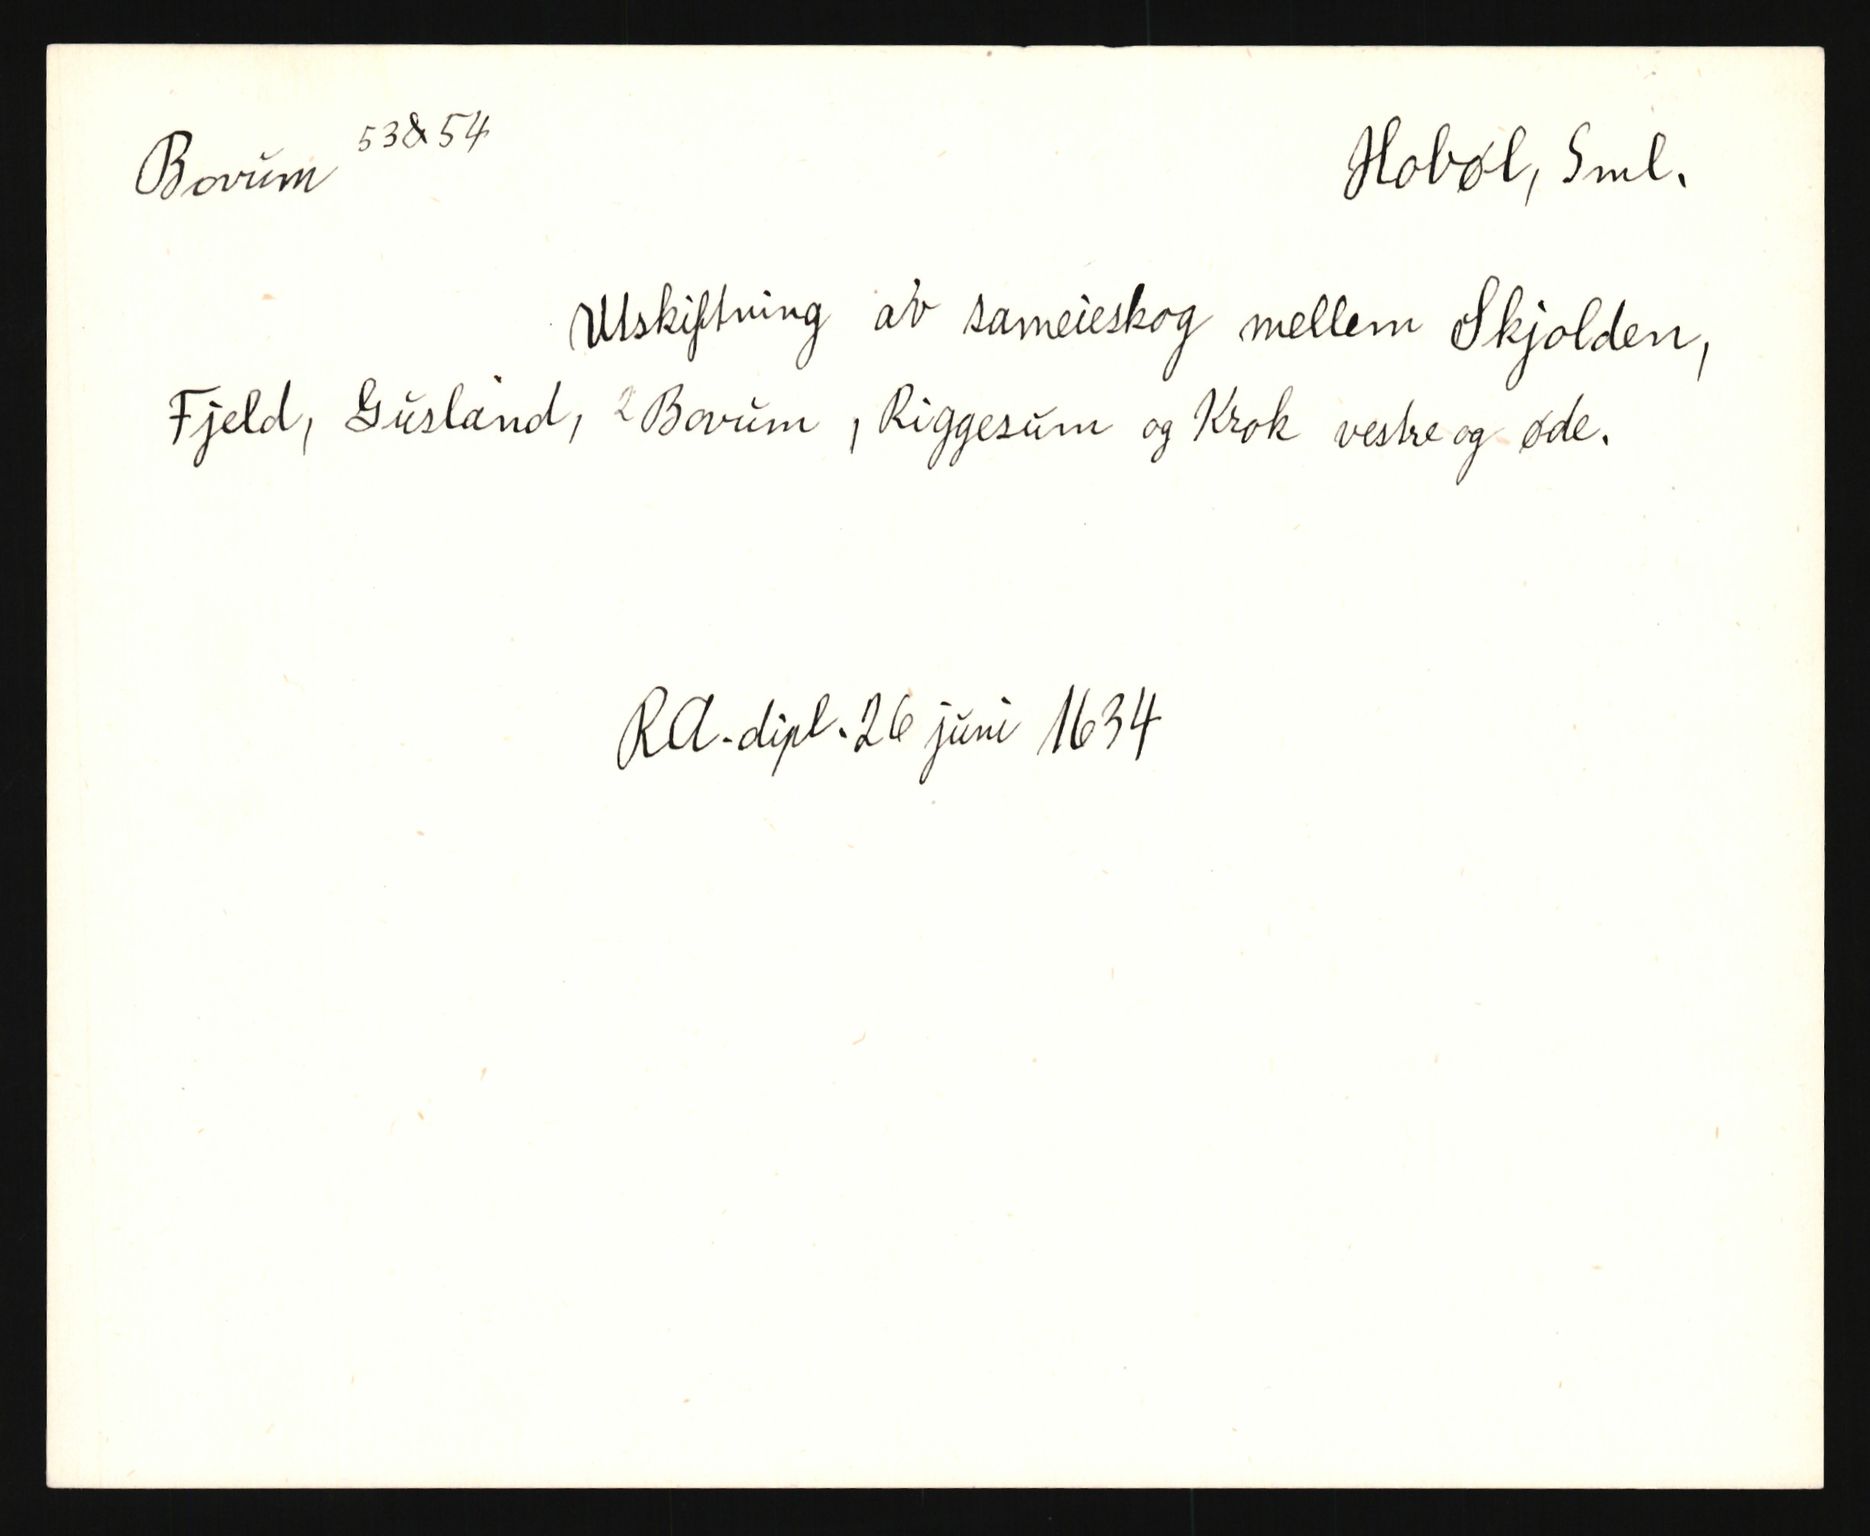 Borum 53 & 54 Hobøl, Sml.
Utskiftning av sameieskog mellem Skjolden,
Fjeld, Gusland, 2 Borum, Riggesum og Krok vestre og øde.
RA-dipl. 26 juni 1634